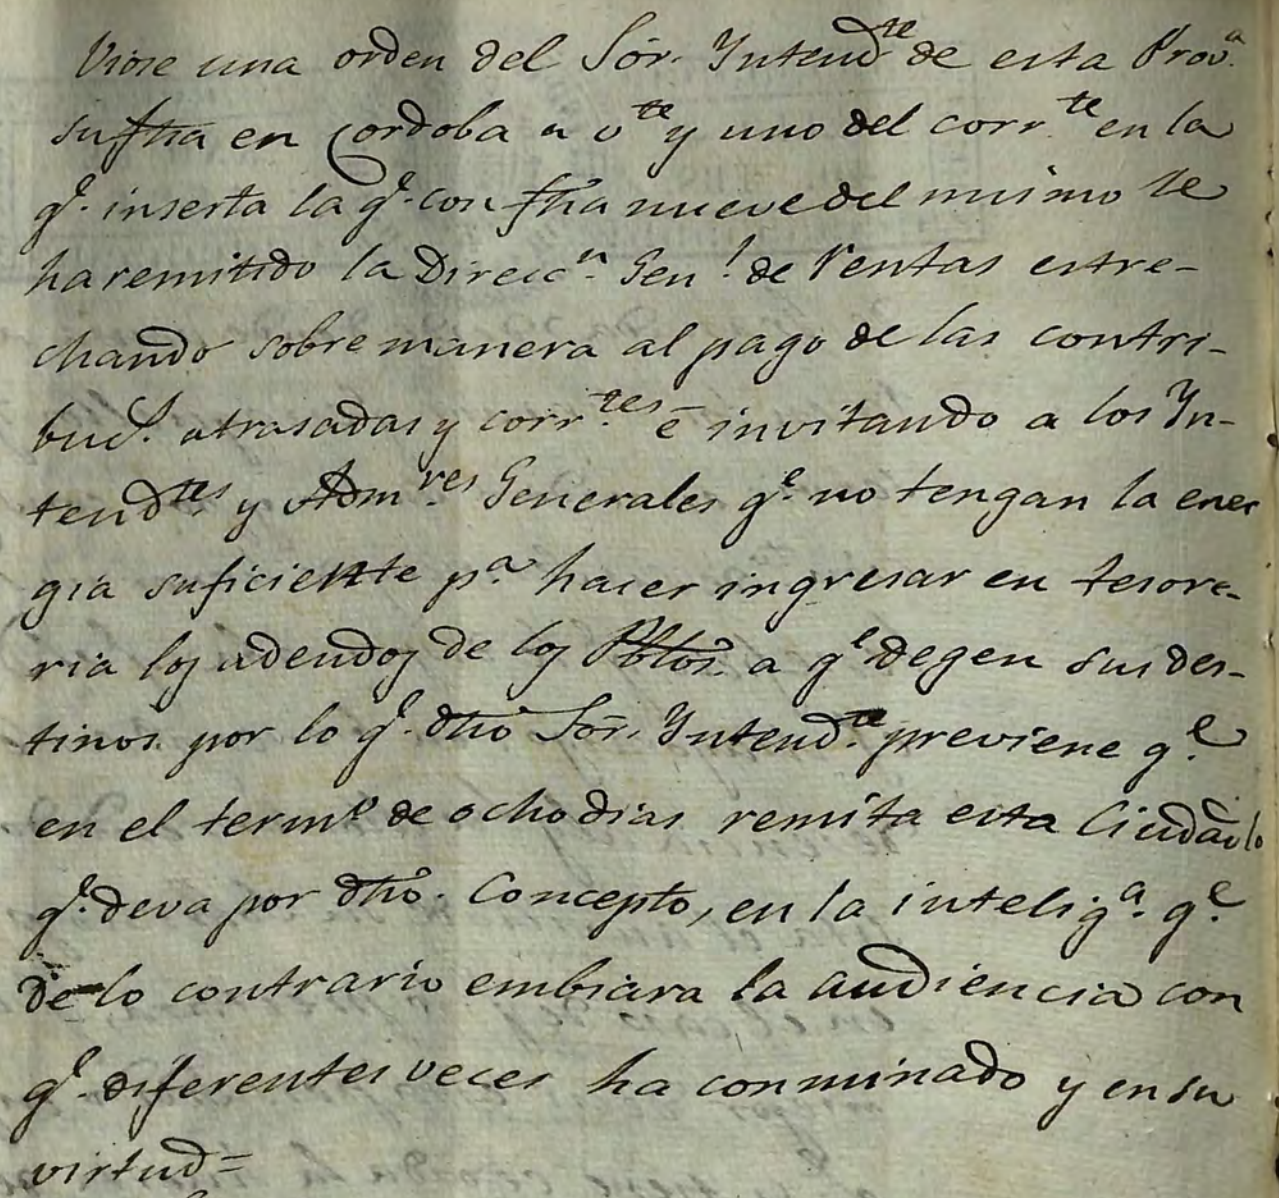 Viose una orden del Sôr. Yntendte de esta Prova.
su fha en Cordoba a vte y uno del corr.te en la
qe. inserta la qe. con fha nueve del mismo le
ha remitido la Direccn. Genl. de Rentas estre-
chando sobre manera al pago de las contri-
buc.s atrasadas y corr.tes é invitando a los Yn-
tend.tes y Adm.res Generales qe. no tengan la ener
gia suficiente pa. hacer ingresar en tesore-
ria los adeudos de los Pblos. a qe degen sus des-
tinos por lo qe. dho Sôr. Yntend.te previene qe.
en el termo de ocho dias remita esta Ciudad lo
qe. deva por dho. Concepto, en la inteliga. qe.
de lo contrario embiara la audiencia con
qe. diferentes veces ha conminado y en su
virtud =